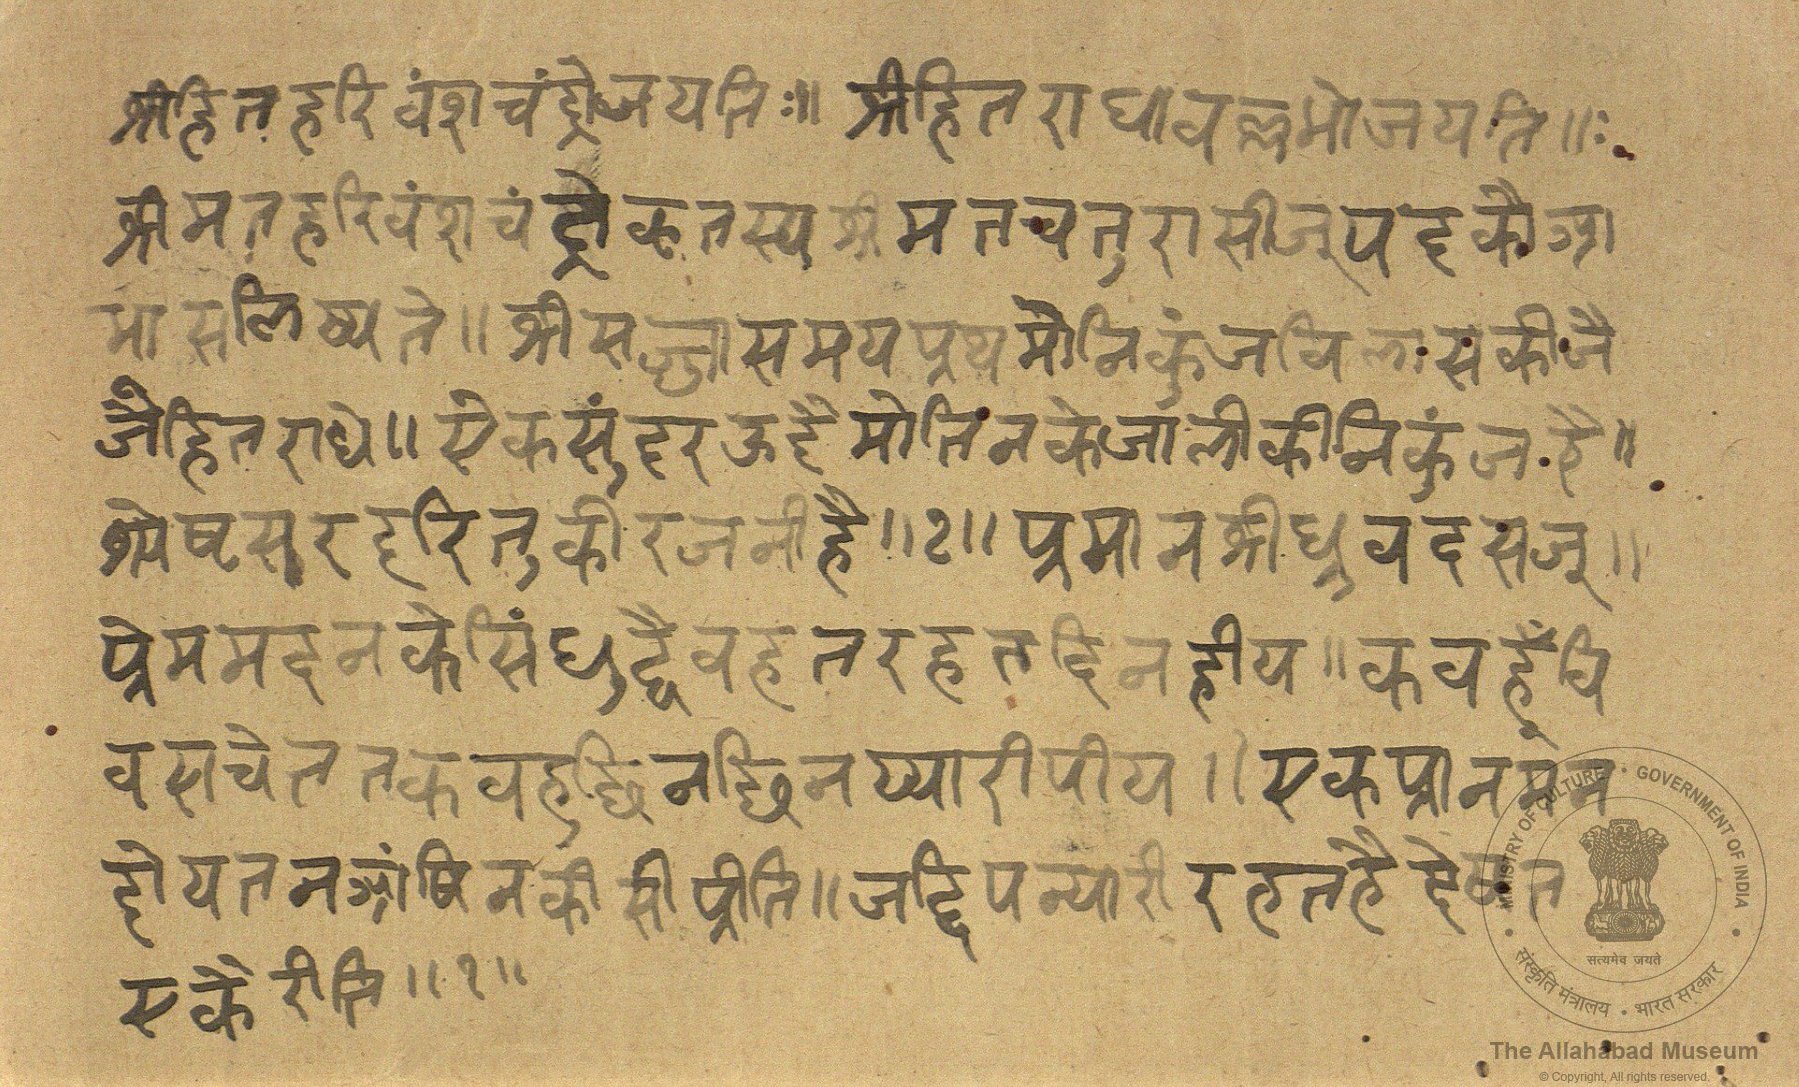 श्रीहितहरिवंशचंद्रोजयतिः॥ श्रीहितराधावल्लभोजयति॥ः
श्रीमतहरिवंशचंद्रोकतस्यश्रीमतचतुरासीजूपदकौआ
भासलिष्यते॥ श्रीसज्जासमयप्रथमौनिकुंजविलासकीजै
जैहितराधे॥ ऐकसुंदरऊहैमोतिनकेजालीकीनिकुंजहै॥
श्रेषसरदरितुकीरजनीहै॥१॥ प्रमानश्रीध्रुवदसजू॥
प्रेममदनकेसिंधुद्वैवहतरहतदिनहीय॥ कवहूँवि
वसचेततकवहुछिनछिनप्यारीपीय॥ एकप्रानमन
दोयतनआंषिनकीसीप्रीति॥ जद्दिपन्यारीरहतहैदेषत
एकैरीति॥१॥
MINISTRY OF CULTURE · GOVERNMENT OF INDIA
सत्यमेव जयते
संस्कृति मंत्रालय · भारत सरकार
The Allahabad Museum
© Copyright, All rights reserved.